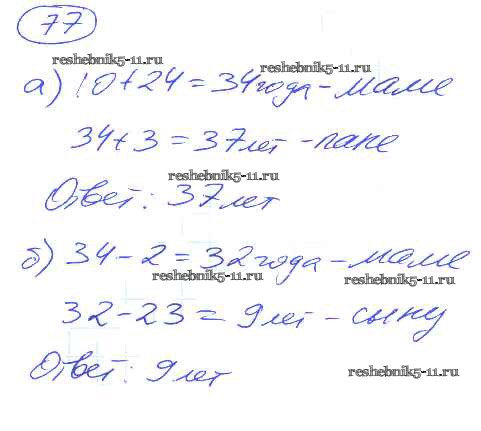 77
reshebnik5-11.ru
reshebnik5-11.ru
а) 10+24 = 34 года - маме
34+3 = 37 лет - папе
reshebnik5-11.ru
Ответ: 37 лет
б) 34-2 = 32 года - маме
reshebnik5-11.ru
reshebnik5-11.ru
32-23 = 9 лет - сыну
Ответ: 9 лет
reshebnik5-11.ru